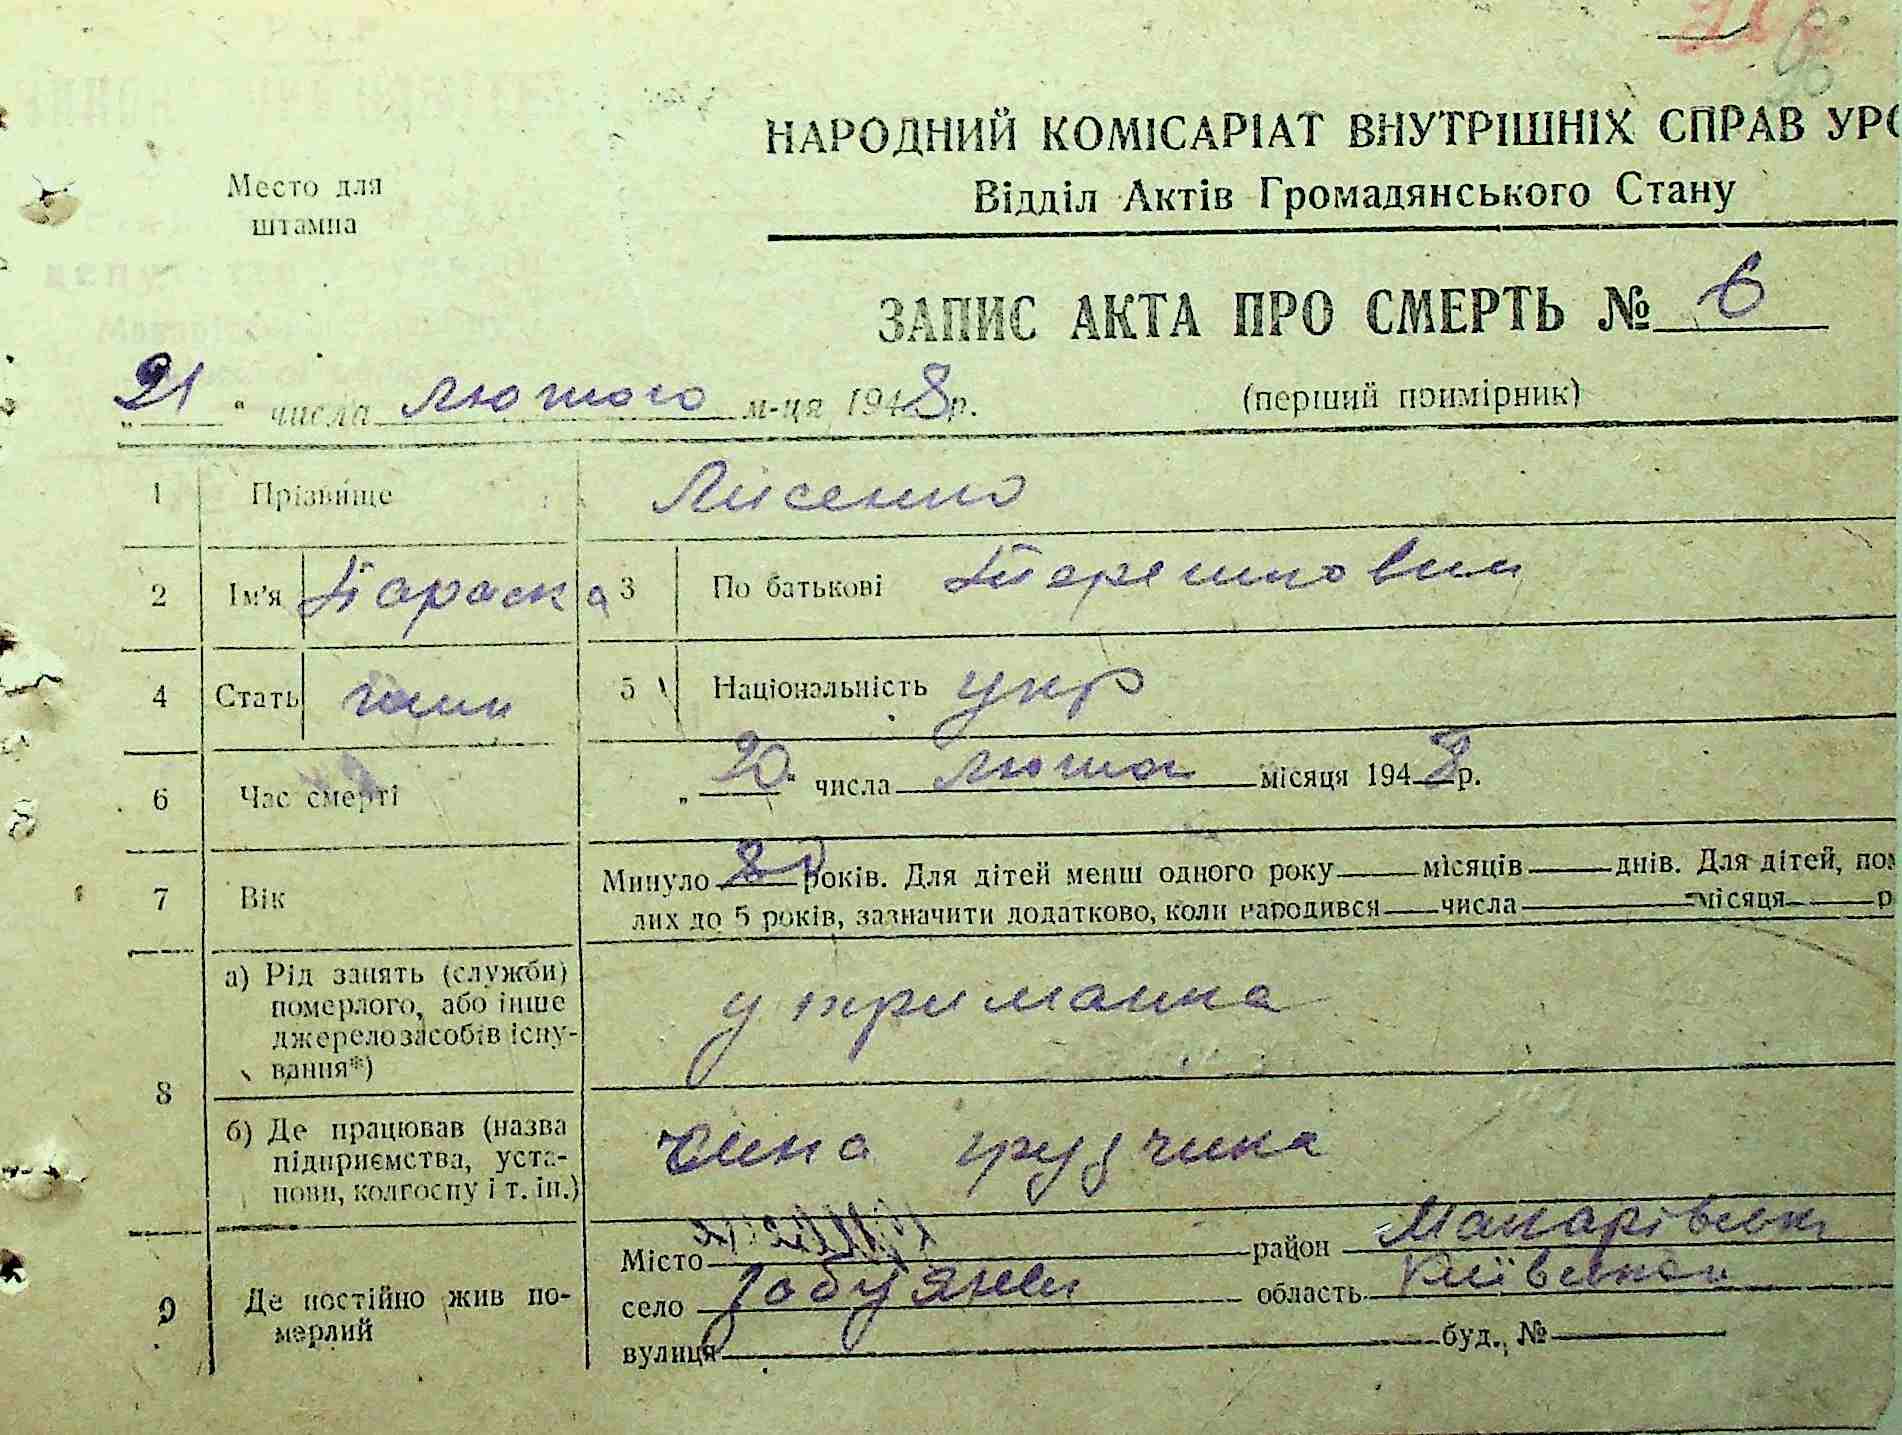 НАРОДНИЙ КОМІСАРІАТ ВНУТРІШНІХ СПРАВ УРС
Відділ Актів Громадянського Стану
Место для
штампа
ЗАПИС АКТА ПРО СМЕРТЬ № 6
„21“ числа лютого м-ця 1948 р.
(перший примірник)
1 Прізвище Лисенко
2 Ім'я Параска 3 По батькові
4 Стать жін 5 Національність укр
6 Час смерті „20“ числа лютого місяця 1948 р.
7 Вік Минуло 80 років. Для дітей менш одного року місяців днів. Для дітей, пом
лих до 5 років, зазначити додатково, коли народився числа місяця р
8 а) Рід занять (служби)
померлого, або інше
джерело засобів існу-
вання*) утриманка
б) Де працював (назва
підприємства, уста-
нови, колгоспу і т. ін.) сина
9 Де постійно жив по-
мерлий
Місто район Макарівськ
село Забуяння область Київської
вулиця буд. №